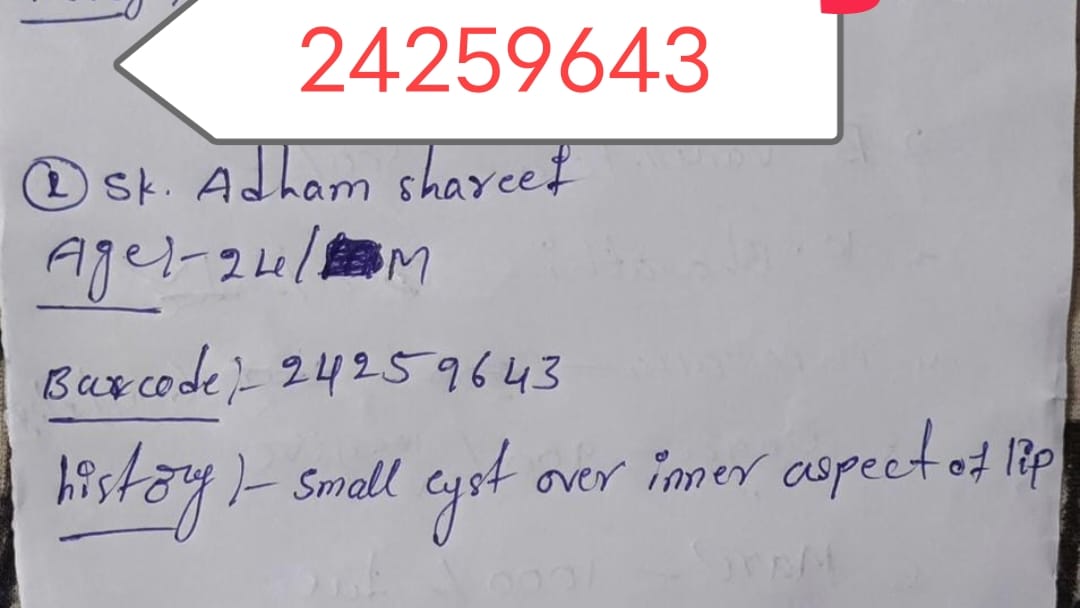 24259643
② Sk. Adham shareef
Age:- 24/ M
Barcode:- 24259643
history:- small cyst over inner aspect of lip